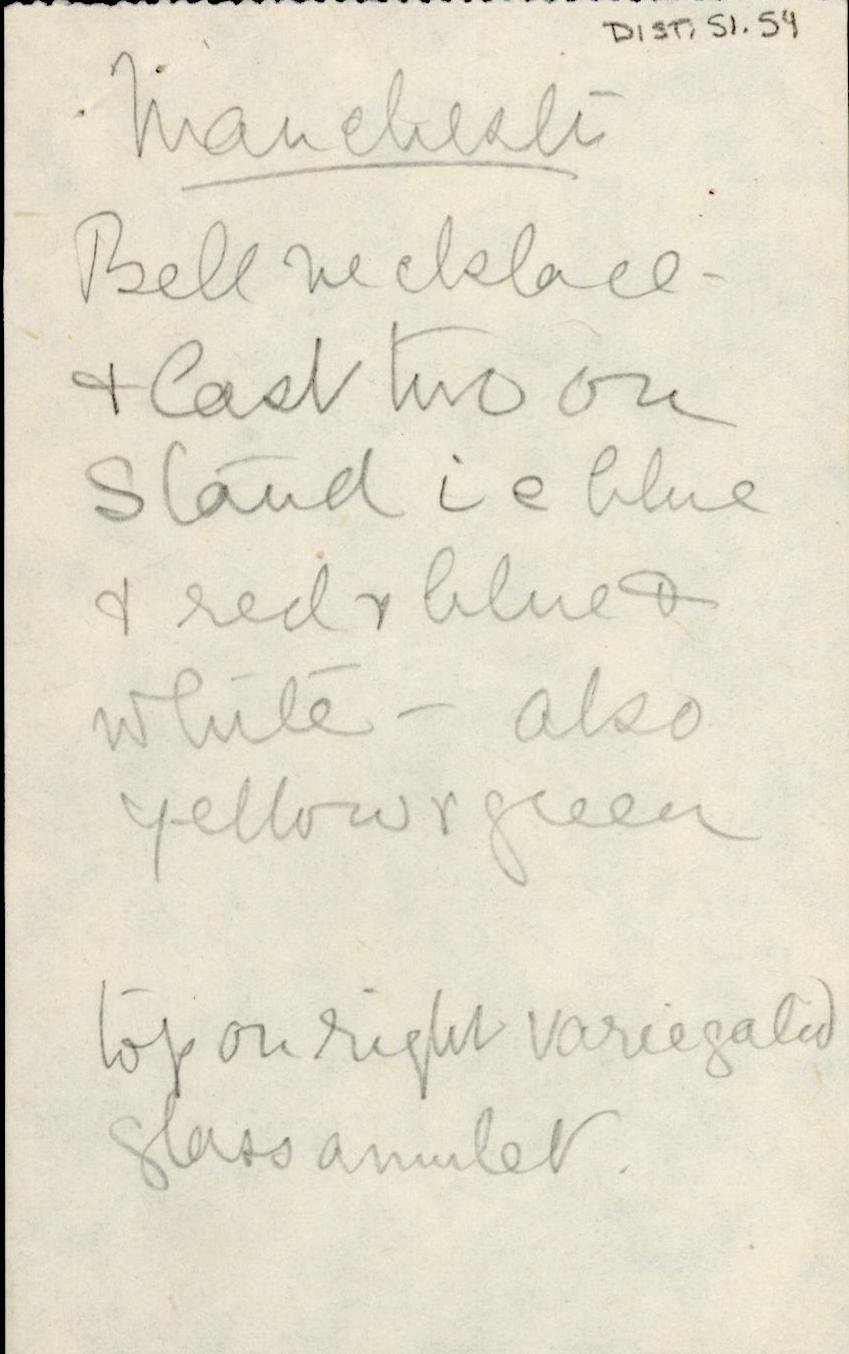 DIST. 51.54
Manchester
Bell necklace -
& last two on
Stand i e blue
& red & blue &
white - also
yellow & green
top on right variegated
glass amulet.